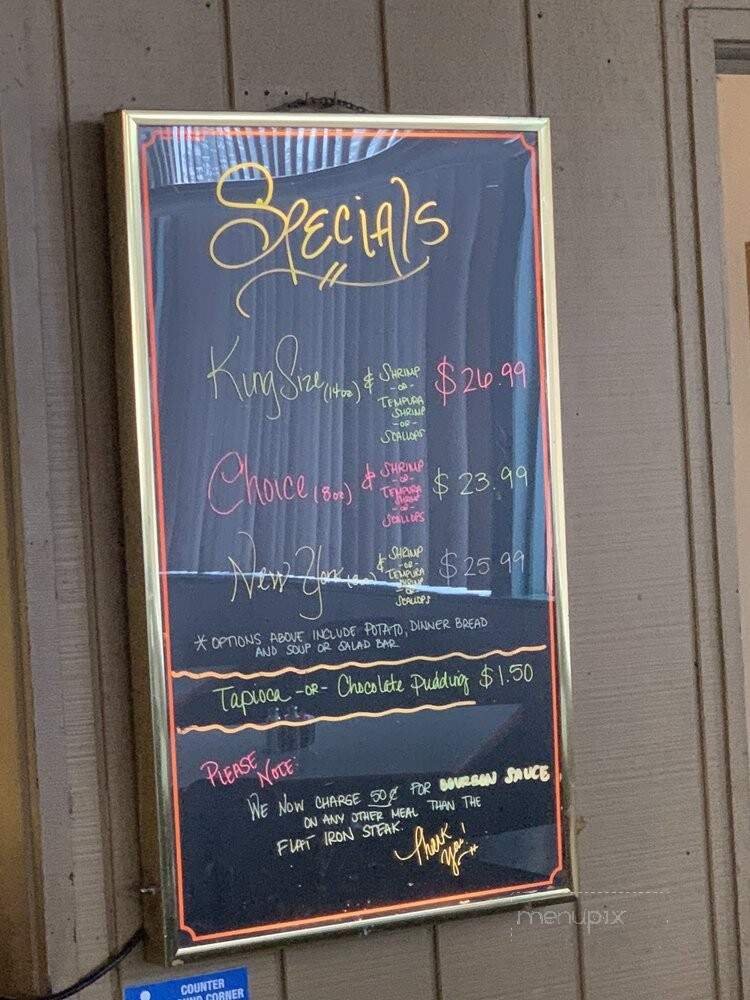 Specials
King Size (14oz) & Shrimp -or- Tempura Shrimp -or- Scallops $26.99
Choice (8oz) & Shrimp -or- Tempura Shrimp -or- Scallops $23.99
New York & Shrimp -or- Tempura Shrimp -or- Scallops $25.99
* OPTIONS ABOVE INCLUDE POTATO, DINNER BREAD
AND SOUP OR SALAD BAR
Tapioca -OR- Chocolate Pudding $1.50
PLEASE NOTE:
WE NOW CHARGE 50¢ FOR BOURBON SAUCE
ON ANY OTHER MEAL THAN THE
FLAT IRON STEAK.
Thank you!
menupix
COUNTER
CORNER